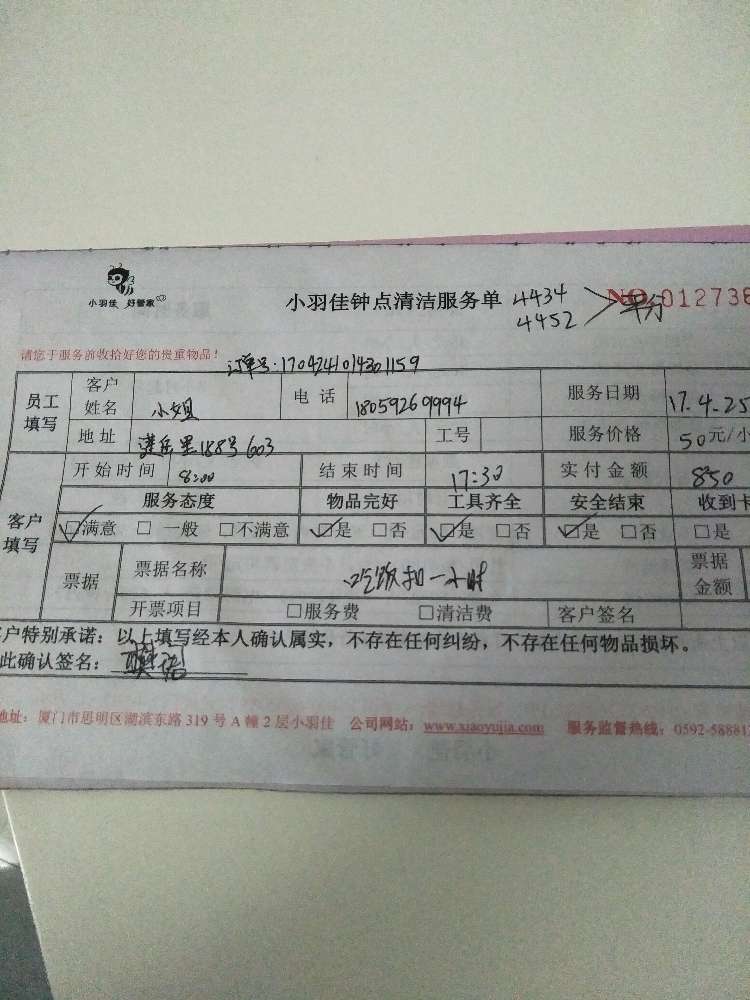 小羽佳 好管家
小羽佳钟点清洁服务单 4434 4452 平分 NO 012738
请您于服务前收拾好您的贵重物品！ 订单号:1704241014301159
员工填写 客户姓名 小姐 电话 18059269994 服务日期 17.4.25
地址 莲岳里188号603 工号 服务价格 50元/小
客户填写 开始时间 8:00 结束时间 17:30 实付金额 850
服务态度 物品完好 工具齐全 安全结束 收到卡
☑满意 □一般 □不满意 ☑是 □否 ☑是 □否 ☑是 □否 □是
票据 票据名称 吃饭扣一小时 票据金额
开票项目 □服务费 □清洁费 客户签名
客户特别承诺：以上填写经本人确认属实，不存在任何纠纷，不存在任何物品损坏。
此确认签名：
地址：厦门市思明区湖滨东路319号A幢2层小羽佳 公司网站：www.xiaoyujia.com 服务监督热线：0592-588812